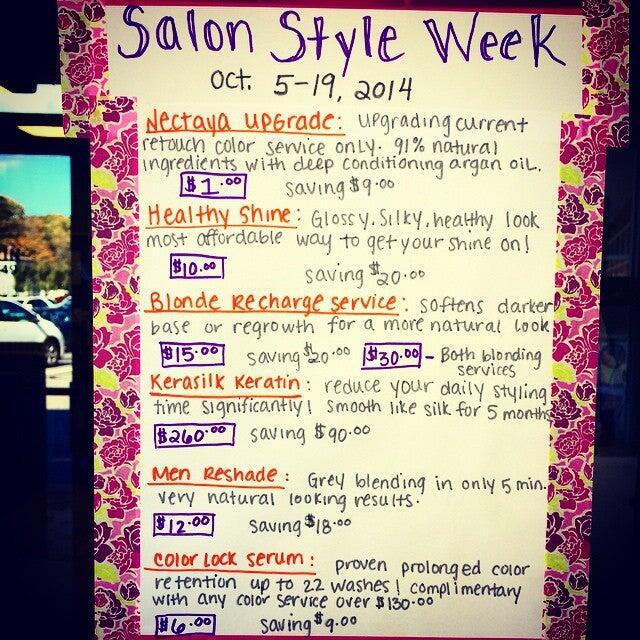 Salon Style Week
Oct. 5-19, 2014
Nectaya Upgrade: Upgrading current
retouch color service only. 91% natural
ingredients with deep conditioning argan oil.
$1.00 saving $9.00
Healthy Shine: Glossy, silky, healthy look
most affordable way to get your shine on!
$10.00 saving $20.00
Blonde Recharge Service: softens darker
base or regrowth for a more natural look
$15.00 saving $20.00 $30.00 - Both blonding
services
Kerasilk Keratin: reduce your daily styling
time significantly! smooth like silk for 5 months
$260.00 saving $90.00
Men Reshade: Grey blending in only 5 min.
very natural looking results.
$12.00 saving $18.00
Color Lock Serum: proven prolonged color
retention up to 22 washes! complimentary
with any color service over $130.00
$6.00 saving $9.00